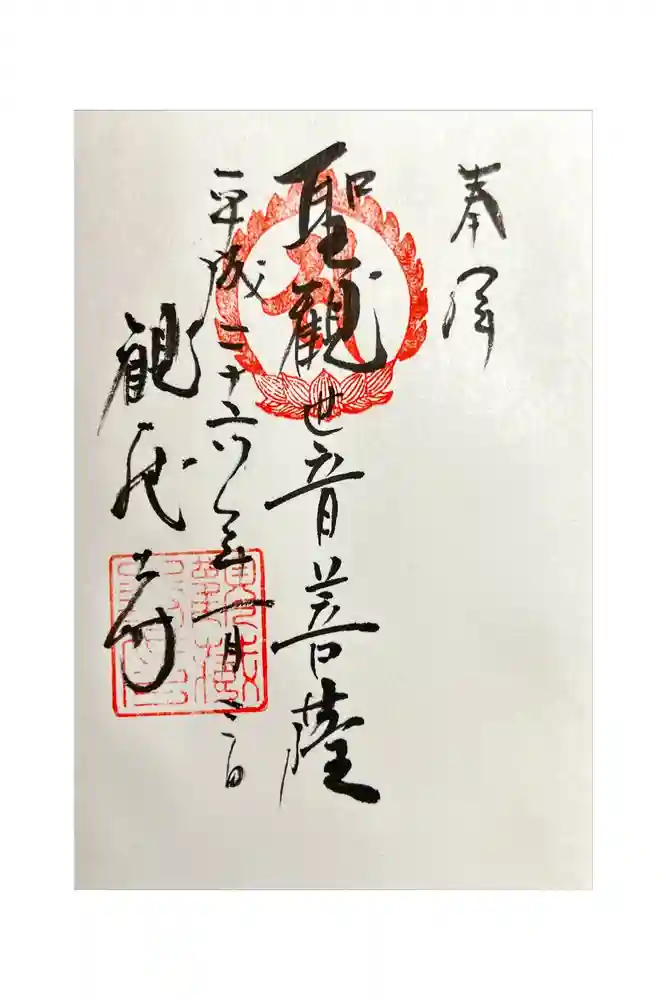 奉拝
聖観世音菩薩
平成二十六年一月 日
観 寺